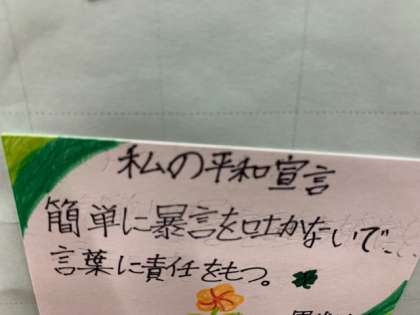 私の平和宣言
簡単に暴言を吐かないで…
言葉に責任をもつ。